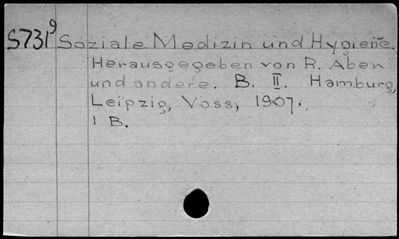 S731⁹ Soziale Medizin und Hygiene.
Herausgegeben von R. Aben
und andere. B. II. Hamburg,
Leipzig, Voss, 1907.
1 B.